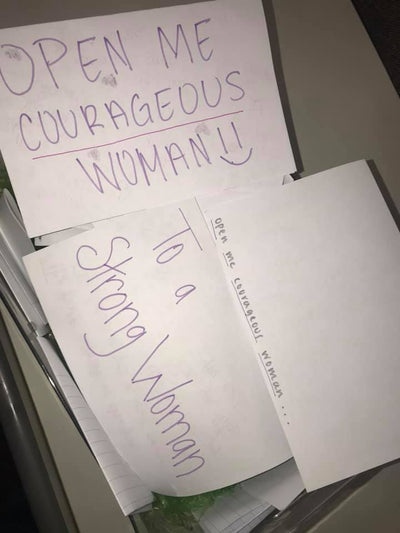 OPEN ME
COURAGEOUS
WOMAN!!
To a
Strong Woman
open me courageous woman...